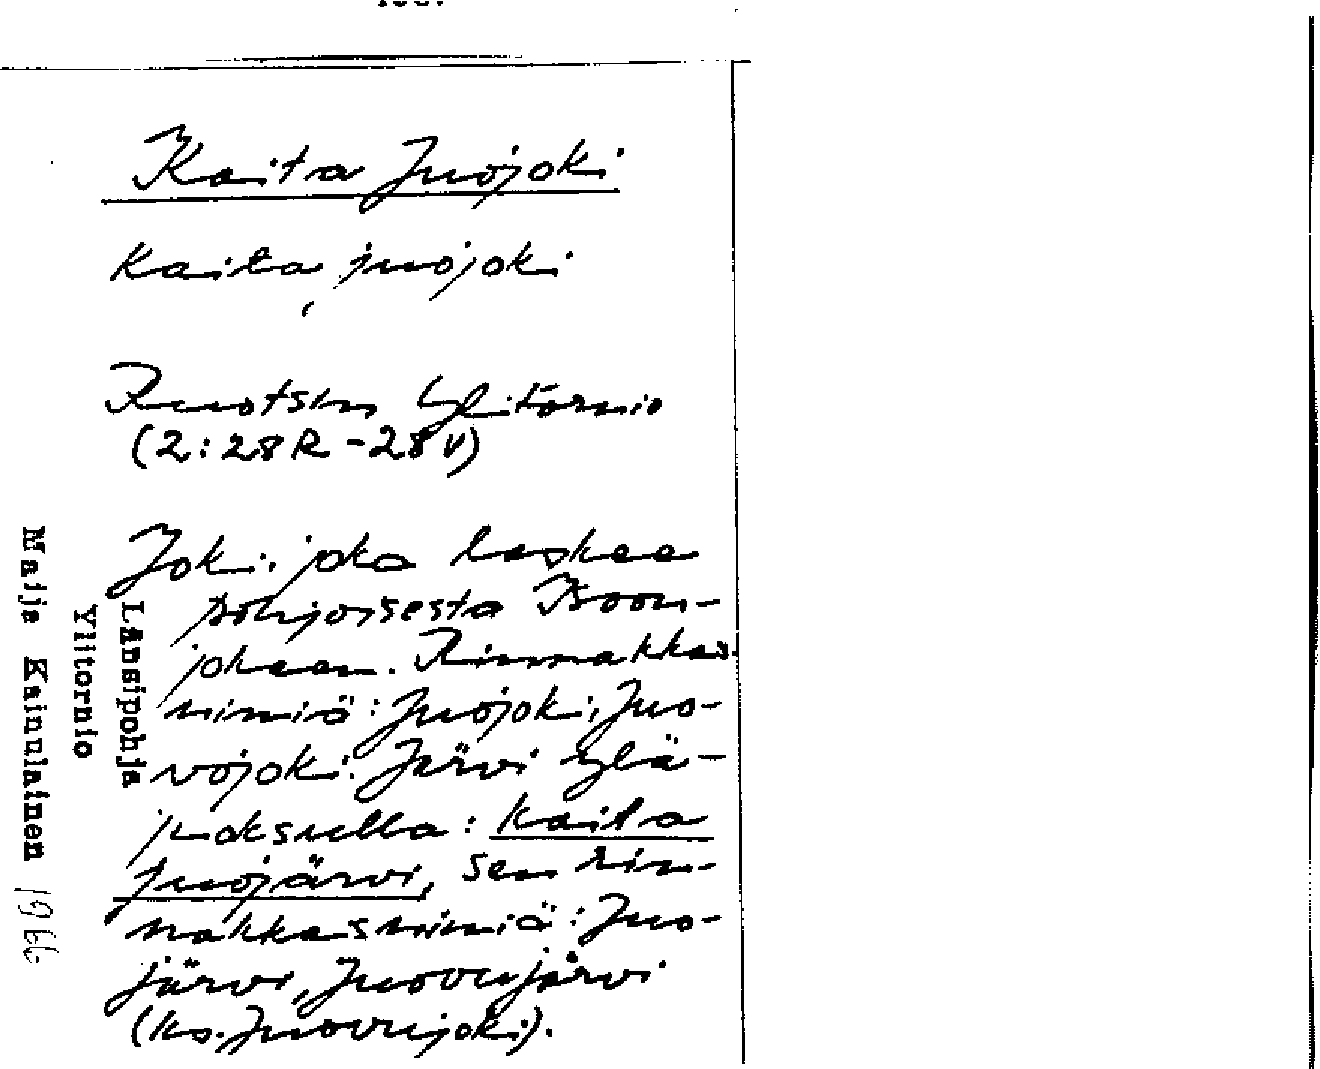 Kaita Juojoki
Kaita juojoki
Ruotsin Ylitornio
(2:28R-28V)
Joki, joka laskee
pohjoisesta Isoon-
jokeen. Rinnakkais-
nimiä: Juojoki, Juo-
vojoki. Järvi ylä-
juoksulla: Kaita
juojärvi, sen rin-
nakkasnimiä: Juo-
järvi, Juovujärvi
(ks. Juovujoki).
Länsipohja
Ylitornio
Maija Kainulainen 1966